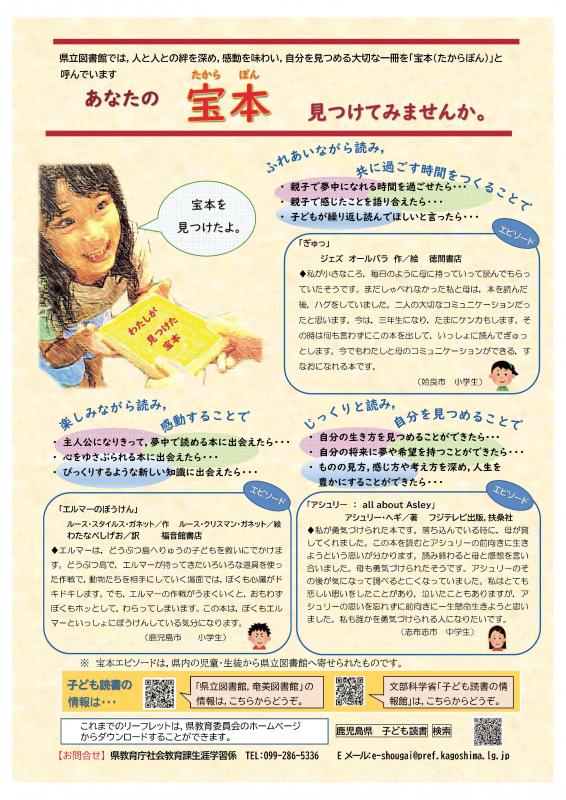 県立図書館では，人と人との絆を深め，感動を味わい，自分を見つめる大切な一冊を「宝本（たからぼん）」と
呼んでいます
あなたの 宝本 見つけてみませんか。
たから ぼん
ふれあいながら読み，
共に過ごす時間をつくることで
・ 親子で夢中になれる時間を過ごせたら・・・
・ 親子で感じたことを語り合えたら・・・
・ 子どもが繰り返し読んでほしいと言ったら・・・
宝本を
見つけたよ。
わたしが
見つけた
宝本
エピソード
「ぎゅっ」
ジェズ オールバラ 作／絵 徳間書店
◆私が小さなころ，毎日のように母に持っていって読んでもらっ
ていたそうです。まだしゃべれなかった私と母は，本を読んだ
後，ハグをしていました。二人の大切なコミュニケーションだっ
たと思います。今は，三年生になり，たまにケンカもします。そ
の時は何も言わずにこの本を出して，いっしょに読んでぎゅっ
とします。今でもわたしと母のコミュニケーションができる，す
なおになれる本です。
（姶良市 小学生）
楽しみながら読み，
感動することで
・ 主人公になりきって，夢中で読める本に出会えたら・・・
・ 心をゆさぶられる本に出会えたら・・・
・ びっくりするような新しい知識に出会えたら・・・
エピソード
「エルマーのぼうけん」
ルース・スタイルス・ガネット／作 ルース・クリスマン・ガネット／絵
わたなべしげお／訳 福音館書店
◆エルマーは，どうぶつ島へりゅうの子どもを救いにでかけ
ます。どうぶつ島で，エルマーが持ってきたいろいろな道具を使っ
た作戦で，動物たちを相手にしていく場面では，ぼくも心臓が
ドキドキします。でも，エルマーの作戦がうまくいくと，おもわず
ぼくもホッとして，わらってしまいます。この本は，ぼくもエル
マーといっしょにぼうけんしている気分になります。
（鹿児島市 小学生）
じっくりと読み，
自分を見つめることで
・ 自分の生き方を見つめることができたら・・・
・ 自分の将来に夢や希望を持つことができたら・・・
・ ものの見方，感じ方や考え方を深め，人生を
豊かにすることができたら・・・
エピソード
「アシュリー ： all about Asley」
アシュリー・ヘギ／著 フジテレビ出版，扶桑社
◆私が勇気づけられた本です。落ち込んでいる時に，母が貸
してくれました。この本を読むとアシュリーの前向きに生き
ようという思いが分かります。読み終わると母と感想を言い
合いました。母も勇気づけられたそうです。アシュリーのそ
の後が気になって調べると亡くなっていました。私はとても
悲しい思いをしたことがあり，泣いたこともありますが，ア
シュリーの思いを忘れずに前向きに一生懸命生きようと思い
ました。私も誰かを勇気づけられる人になりたいです。
（志布志市 中学生）
※ 宝本エピソードは，県内の児童・生徒から県立図書館へ寄せられたものです。
子ども読書の
情報は・・・
「県立図書館，奄美図書館」の
情報は，こちらからどうぞ。
文部科学省「子ども読書の情
報館」は，こちらからどうぞ。
これまでのリーフレットは，県教育委員会のホームページ
からダウンロードすることができます。
鹿児島県 子ども読書 検索
【お問合せ】 県教育庁社会教育課生涯学習係 TEL：099-286-5336 Ｅメール：e-shougai@pref.kagoshima.lg.jp